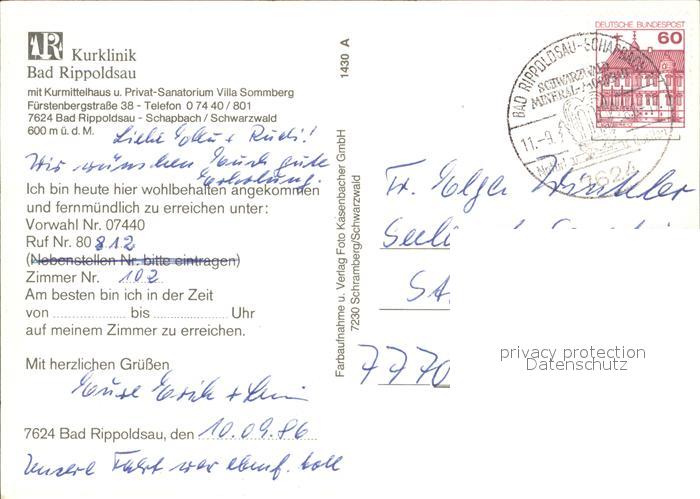 AR Kurklinik
Bad Rippoldsau
mit Kurmittelhaus u. Privat-Sanatorium Villa Sommberg
Fürstenbergstraße 38 - Telefon 0 74 40 / 801
7624 Bad Rippoldsau - Schapbach / Schwarzwald
600 m ü. d. M.
Liebe Elka + Rudi!
Wir wünschen Euch gute
Erholung.
Ich bin heute hier wohlbehalten angekommen
und fernmündlich zu erreichen unter:
Vorwahl Nr. 07440
Ruf Nr. 80 812
(Nebenstellen Nr. bitte eintragen)
Zimmer Nr. 102
Am besten bin ich in der Zeit
von bis Uhr
auf meinem Zimmer zu erreichen.
Mit herzlichen Grüßen
Eure Erich +
7624 Bad Rippoldsau, den 10.09.86
Unsere Fahrt war ebenf. toll
1430 A
Farbaufnahme u. Verlag Foto Kasenbacher GmbH
7230 Schramberg/Schwarzwald
DEUTSCHE BUNDESPOST
60
BAD RIPPOLDSAU-SCHAPBACH
SCHWARZWALD
MINERAL-MOORBAD
11.-9.
7624
Fr. Elga Winkler
7770
privacy protection
Datenschutz